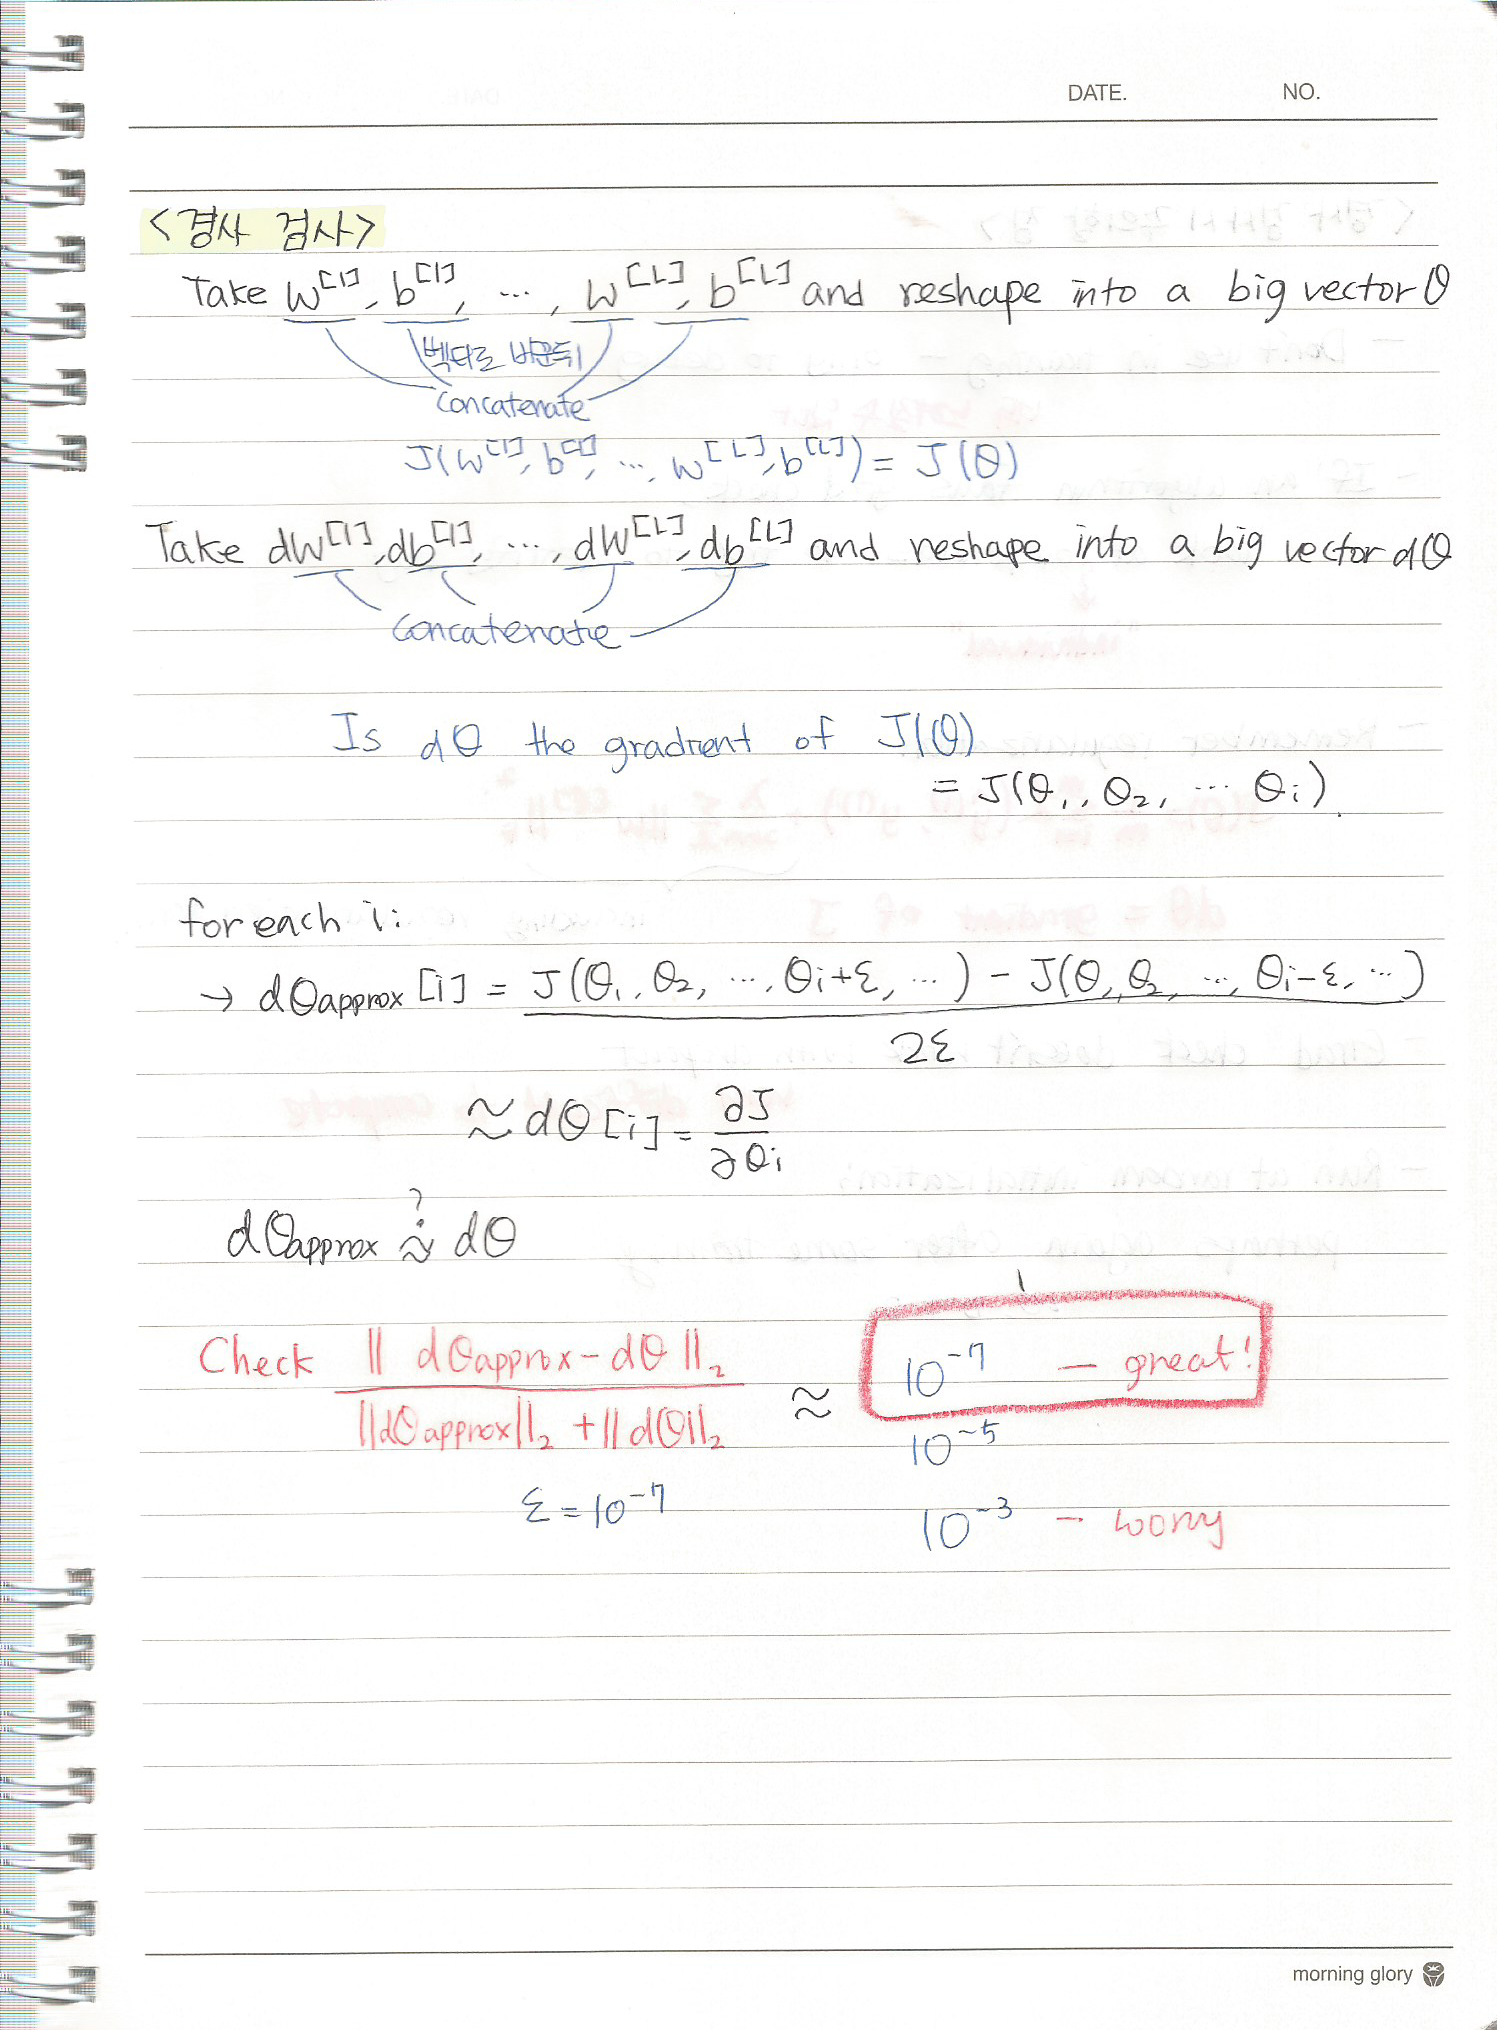 DATE. NO.
<경사 검사>
Take W[1], b[1], ..., W[L], b[L] and reshape into a big vector θ
벡터로 바꾼뒤
Concatenate
J(W[1], b[1], ..., W[L], b[L]) = J(θ)
Take dW[1], db[1], ..., dW[L], db[L] and reshape into a big vector dθ
Concatenate
Is dθ the gradient of J(θ)
= J(θ1, θ2, ... θi)
for each i:
→ dθapprox [i] = J(θ1, θ2, ..., θi+ε, ...) - J(θ1, θ2, ..., θi-ε, ...)
2ε
≈ dθ[i] = ∂J/∂θi
?
dθapprox ≈ dθ
Check || dθapprox - dθ ||2 ≈ 10^-7 — great!
||dθapprox||2 + ||dθ||2
10^-5
ε = 10^-7
10^-3 - worry
morning glory